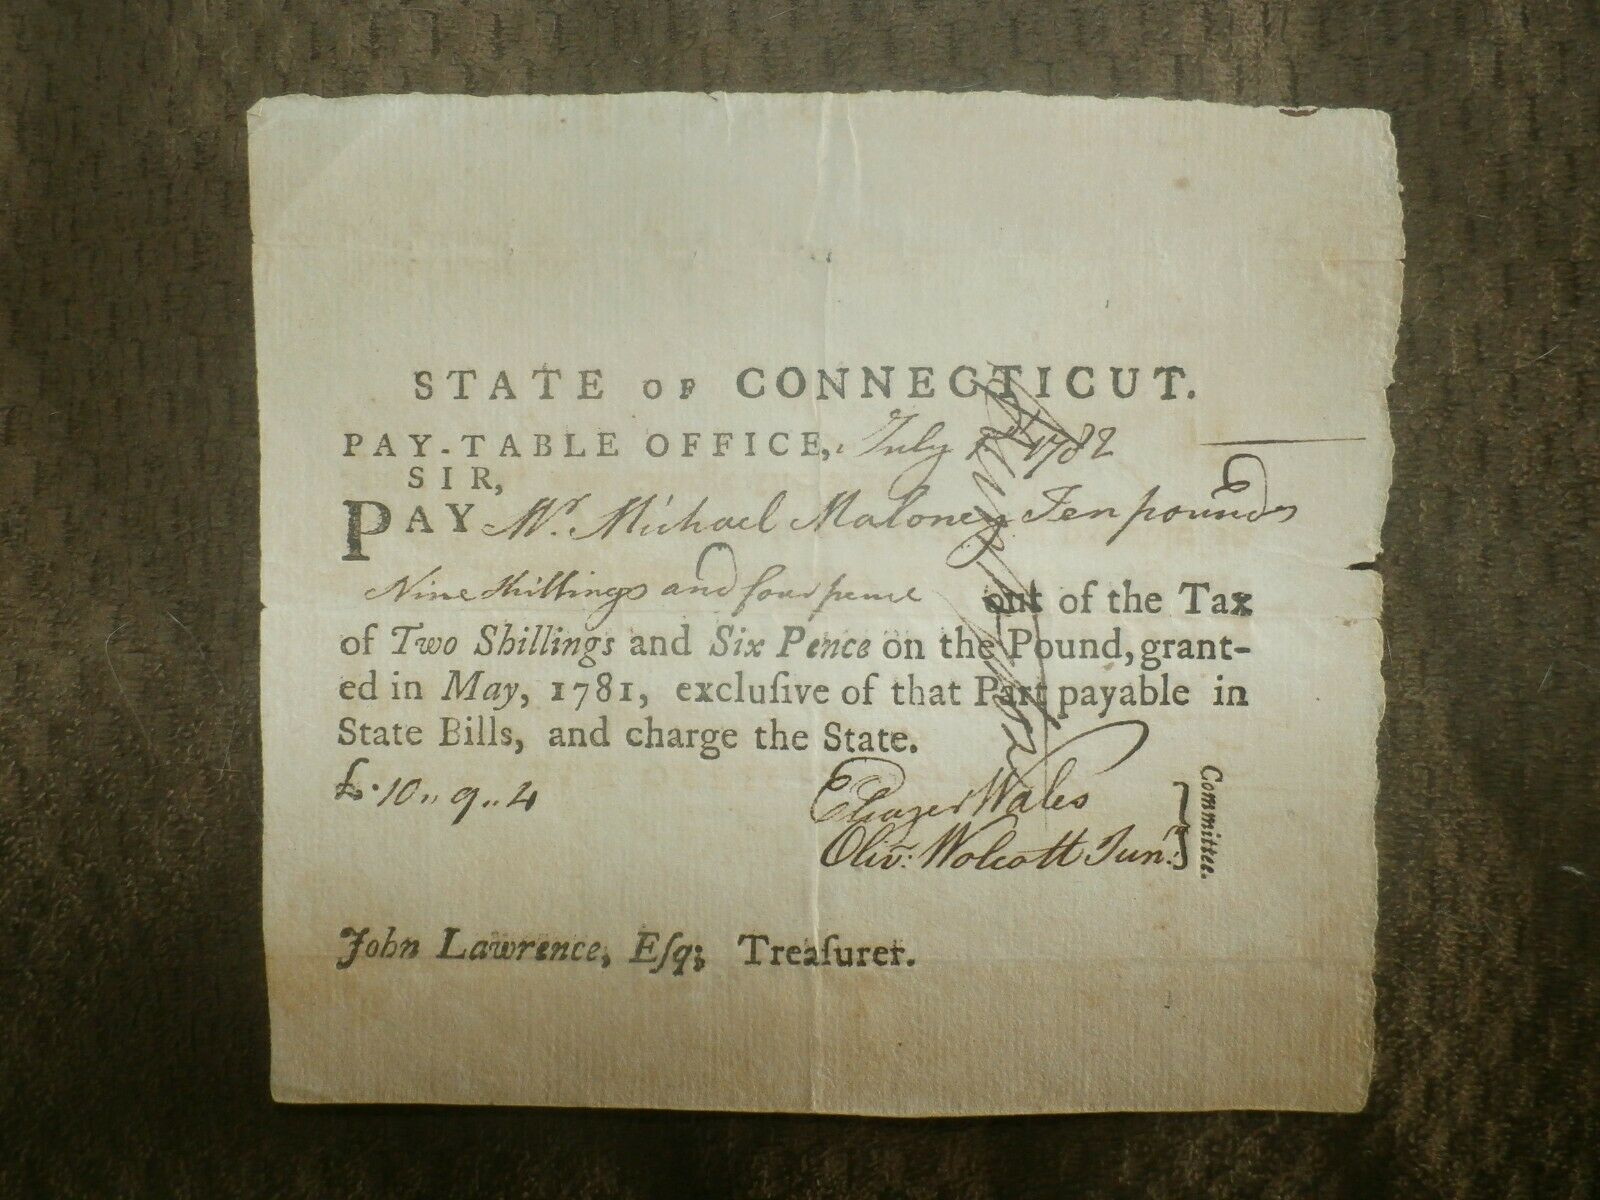 STATE OF CONNECTICUT.
PAY-TABLE OFFICE, July 1782
SIR,
PAY Mr. Michael Maloney Ten pounds
Nine Shillings and four pence out of the Tax
of Two Shillings and Six Pence on the Pound, grant-
ed in May, 1781, excluſive of that Part payable in
State Bills, and charge the State.
£. 10,, 9,, 4
Eleazer Wales
Oliv: Wolcott Junr.
Committee.
John Lawrence, Eſq; Treaſurer.